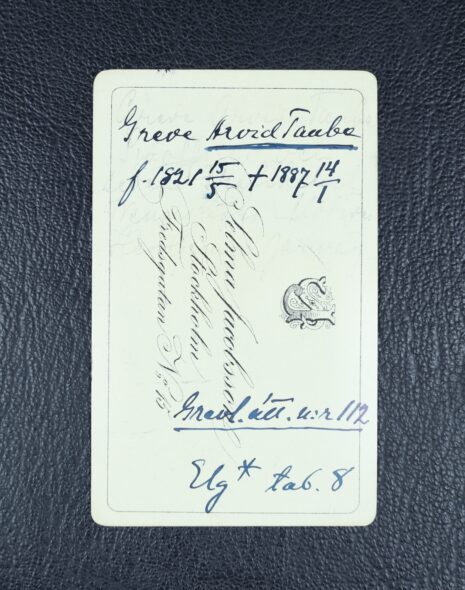 Greve Arvid Taube
f. 1821 15/5 + 1887 14/1
Selma Jacobsson
Stockholm
Fredsgatan
Grevl. ätt. n:r 112
Elg* tab. 8